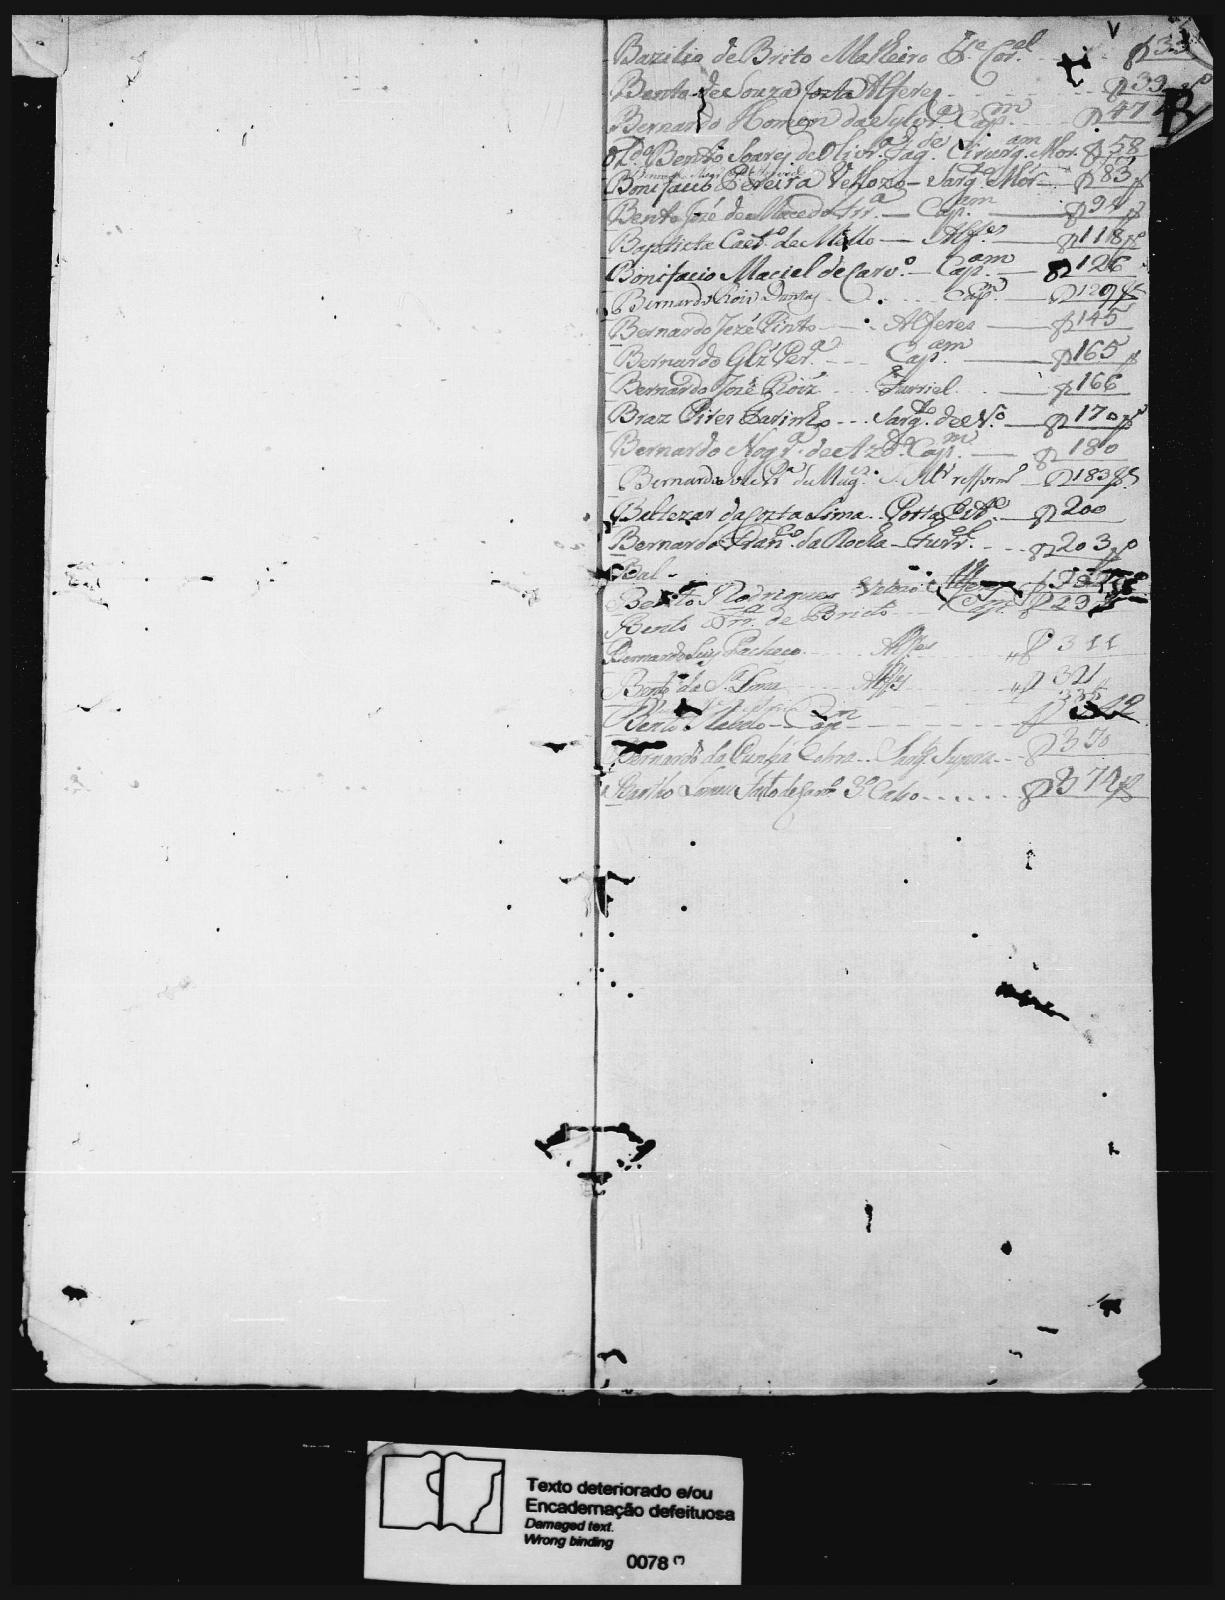 V
B
Bazilio de Brito Malheiro Te. Corel. f 33
Bento de Souza Costa Alferes f 39
Bernardo Homem da Sylva. Capm. f 47
O Ldo. Bento Soares de Olivra. Cirurg. Mor. f 58
Bonifacio Pereira Vellozo - Sargto. Mor f 83
Bento José de Macedo Frra. - Capam. f 92
Baptista Caeto. de Mello - Alfes. f 118
Bonifacio Maciel de Carvo. - Capam. f 126
Bernardo Roiz Dantas Capm. f 129
Bernardo Jozé Pinto Alferes f 145
Bernardo Glz Pera. Capam. f 165
Bernardo José Roiz Furriel f 166
Braz Pires Farinho Sargto. de No. f 170
Bernardo Nogra. de Azdo. Capm. f 180
Bernardo f 183
Baltezar da Costa Lima Porta f 200
Bernardo Franco. da Rocha - Furrel. f 203
Bal
Bento Rodrigues Velozo Alferes
Bento Frra. de Brito Capm. f 29
Bernardo Luis Pacheco Alffes f 311
Bento da Sa. Lima Alffes f 321
335
Bento Capm
Bernardo da Cunha Cobra Sargto. Supra f 350
3o. Cabo f 374
Texto deteriorado e/ou
Encadernação defeituosa
Damaged text.
Wrong binding
0078